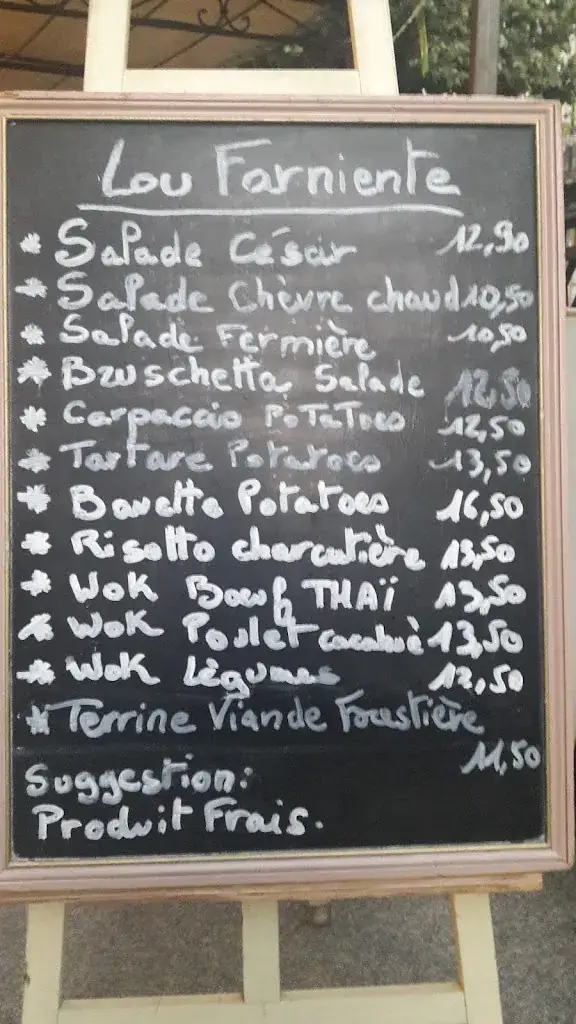 Lou Farniente
* Salade César 12,90
* Salade Chèvre chaud 10,50
* Salade Fermière 10,50
* Bruschetta Salade 12,50
* Carpaccio PoTaToes 12,50
* Tartare Potatoes 13,50
* Bavette Potatoes 16,50
* Risotto charcutière 13,50
* Wok Boeuf THAÏ 13,50
* Wok Poulet 13,50
* Wok Légumes 12,50
* Terrine Viande Forestière
11,50
Suggestion:
Produit Frais.